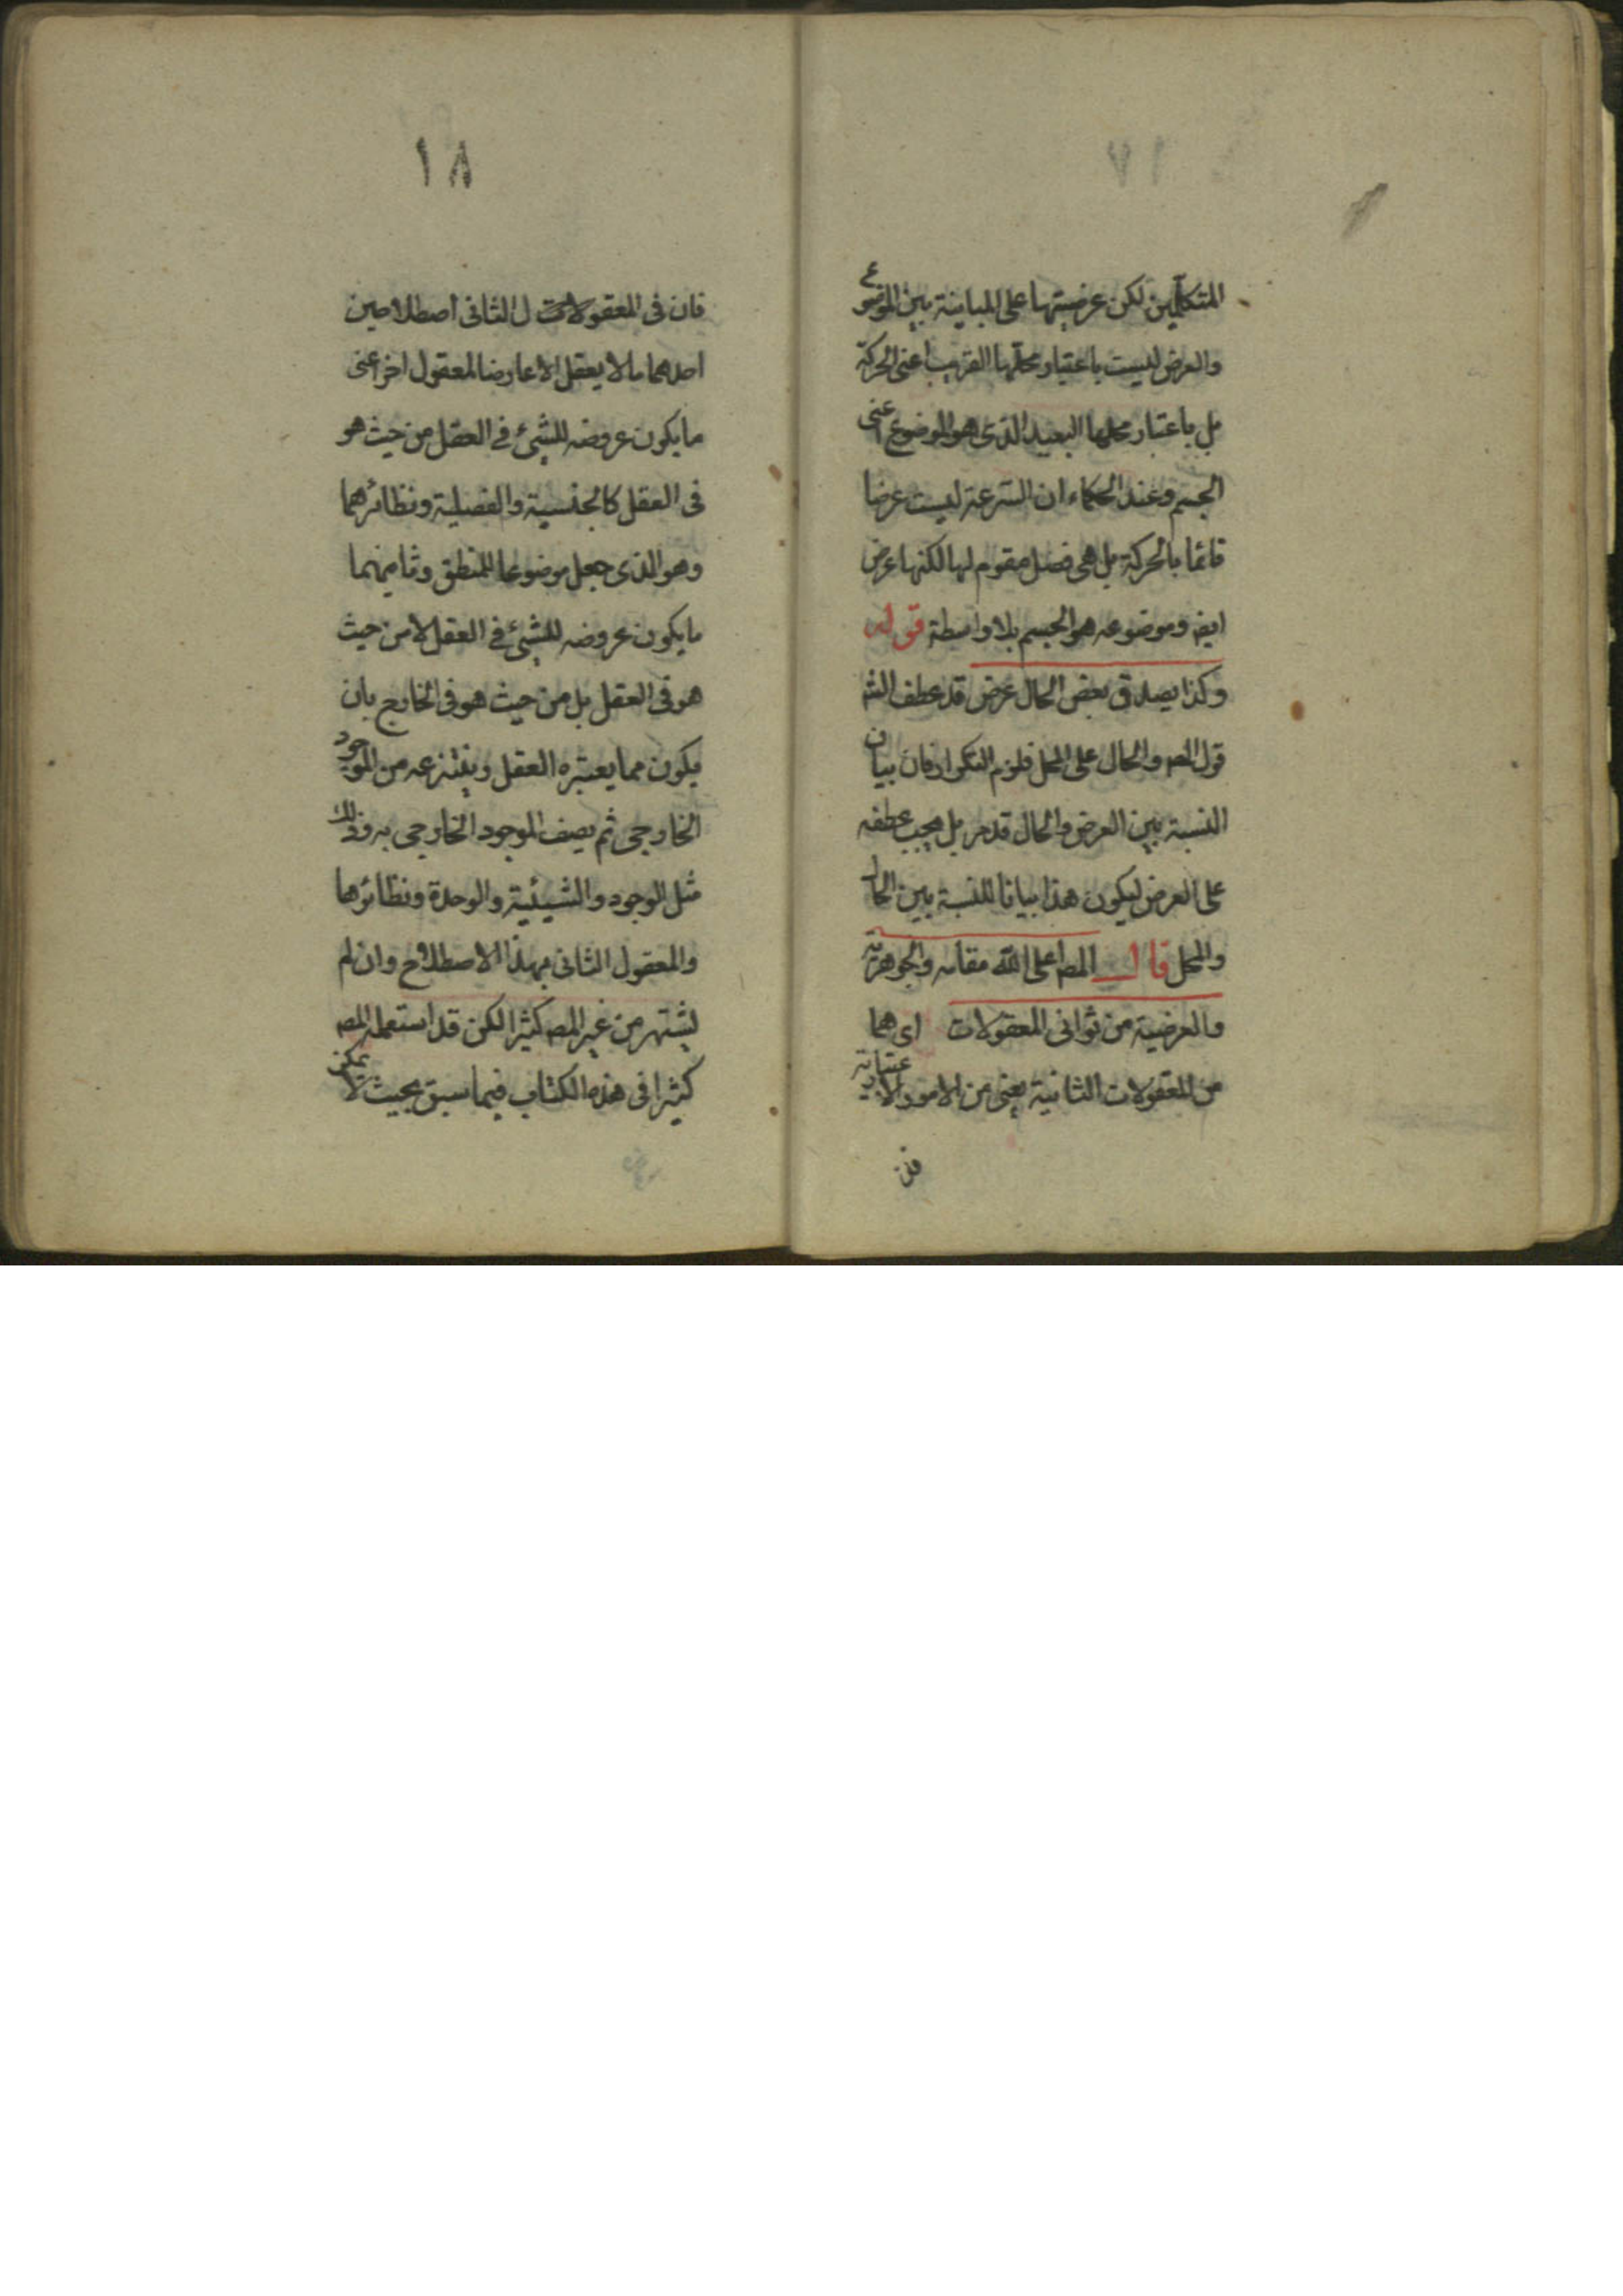 المتكلمين لكن عرضيتها على المباينة بين الموضوع
والعرض ليست باعتبار محلها القريب اعنى الحركة
بل باعتبار محلها البعيد الذى هو الموضوع اعنى
الجسم وعند الحكماء ان السرعة ليست عرضا
قائما بالحركة بل هى فصل مقوم لها لكنها عرض
ايض وموضوعه هو الجسم بلا واسطة قوله
وكذا يصدق بعض الحال عرض قد عطف الش
قول المص والحال على المحل فلزم التكرار فان بيان
النسبة بين العرض والحال قد مر بل يجب عطفه
على العرض ليكون هذا بيانا للنسبة بين الحال
والمحل قال المص اعلى الله مقامه والجوهرية
والعرضية من ثوانى المعقولات اى هما
من المعقولات الثانية يعنى من الامور الاعتبارية
فان
١٨
فان فى المعقولات ل الثانى اصطلاحين
احدهما ما لا يعقل الا عارضا لمعقول اخر اعنى
ما يكون عروضه للشىء فى العقل من حيث هو
فى العقل كالجنسية والفصلية ونظائرهما
وهو الذى جعل موضوعا للمنطق وثانيهما
ما يكون عروضه للشىء فى العقل لا من حيث
هو فى العقل بل من حيث هو فى الخارج بان
يكون مما يعتبره العقل وينتزعه من الموجود
الخارجى ثم يصف الموجود الخارجى به وذلك
مثل الوجود والشيئية والوحدة ونظائرها
والمعقول الثانى بهذا الاصطلاح وان لم
يشتهر من غير المص كثيرا لكن قد استعمله المص
كثيرا فى هذه الكتاب فيما سبق بحيث لا يمكن